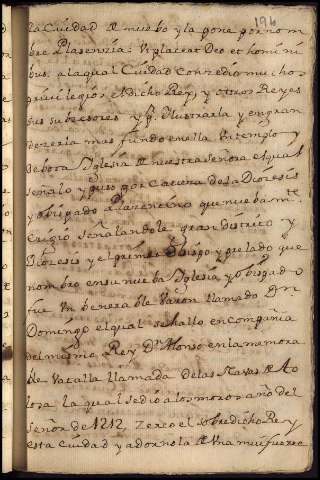 196
la Ciudad de nuebo y la pone por nom
bre Plasenzia. Vt placeat Deo et homini
bus, a la qual Ciudad conzedio muchos
pribilegios el dicho Rey, y otros Reyes
sus subcesores y p. Ilustrarla y engran
dezerla mas fundo en ella Vn templo y
debota Iglesia de nuestra Señora el qual
señalo y puso por Cavera de la Diozesis
y obispado Plazentino que nueba mte.
Erigio señalandole gran districto y
Diozesis y el primer Obispo y prelado que
nombro en su nueba Iglesia y obispado
fue Vn benerable Varon llamado Dn.
Domingo el qual se hallo en compañia
del mismo Rey Dn. Alonso en la memora
ble Vatalla llamada de las Navas de To
losa la qual se dio a los moros año del
señor de 1212, Zerco el sobredicho Rey
esta Ciudad y adornola de Vna mui fuerte